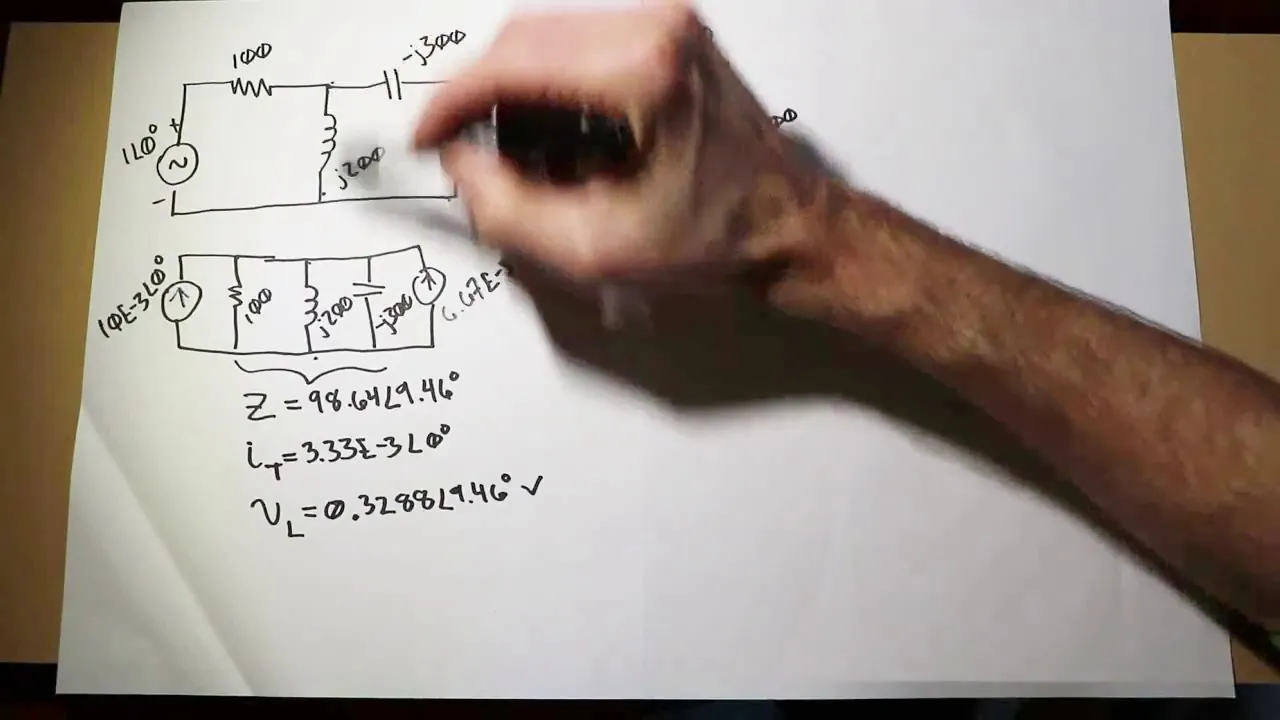 100
-j300
1∠0°
+
~
j200
-
00
10E-3∠0°
100
j200
-j300
6.67E-
Z = 98.64∠9.46°
i_T = 3.33E-3∠0°
v_L = 0.3288∠9.46° ✓